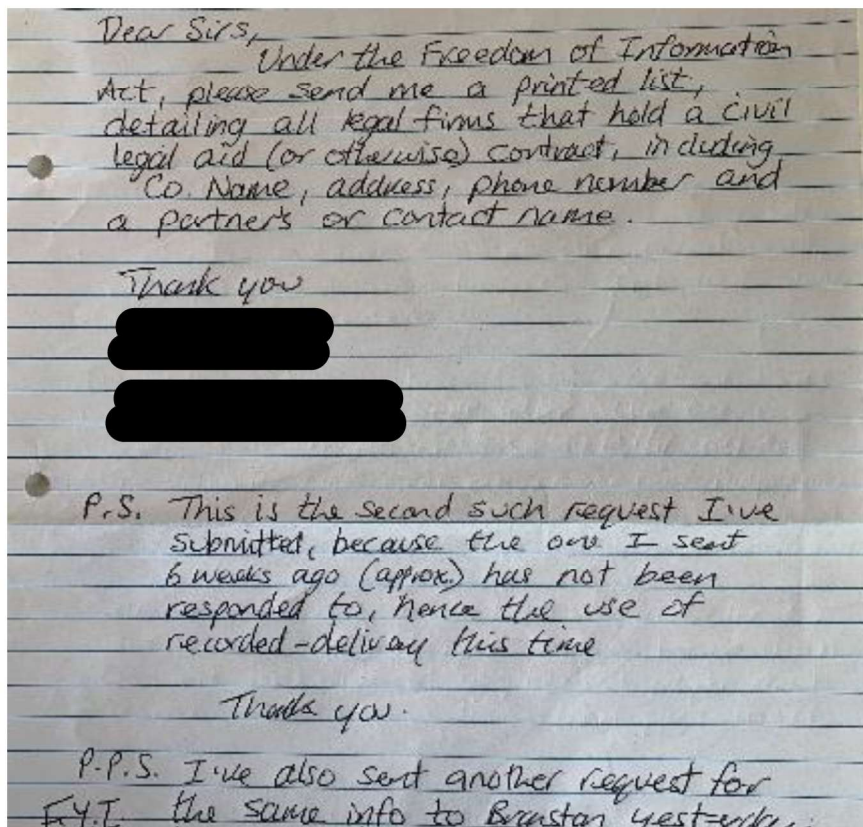 Dear Sirs,
Under the Freedom of Information
Act, please send me a printed list,
detailing all legal firms that hold a civil
legal aid (or otherwise) contract, including
Co. Name, address, phone number and
a partner's or contact name.
Thank you
P.S. This is the second such request I've
submitted, because the one I sent
6 weeks ago (approx) has not been
responded to, hence the use of
recorded-delivery this time
Thank you.
P.P.S. I've also sent another request for
F.Y.I. the same info to Branston yesterday.